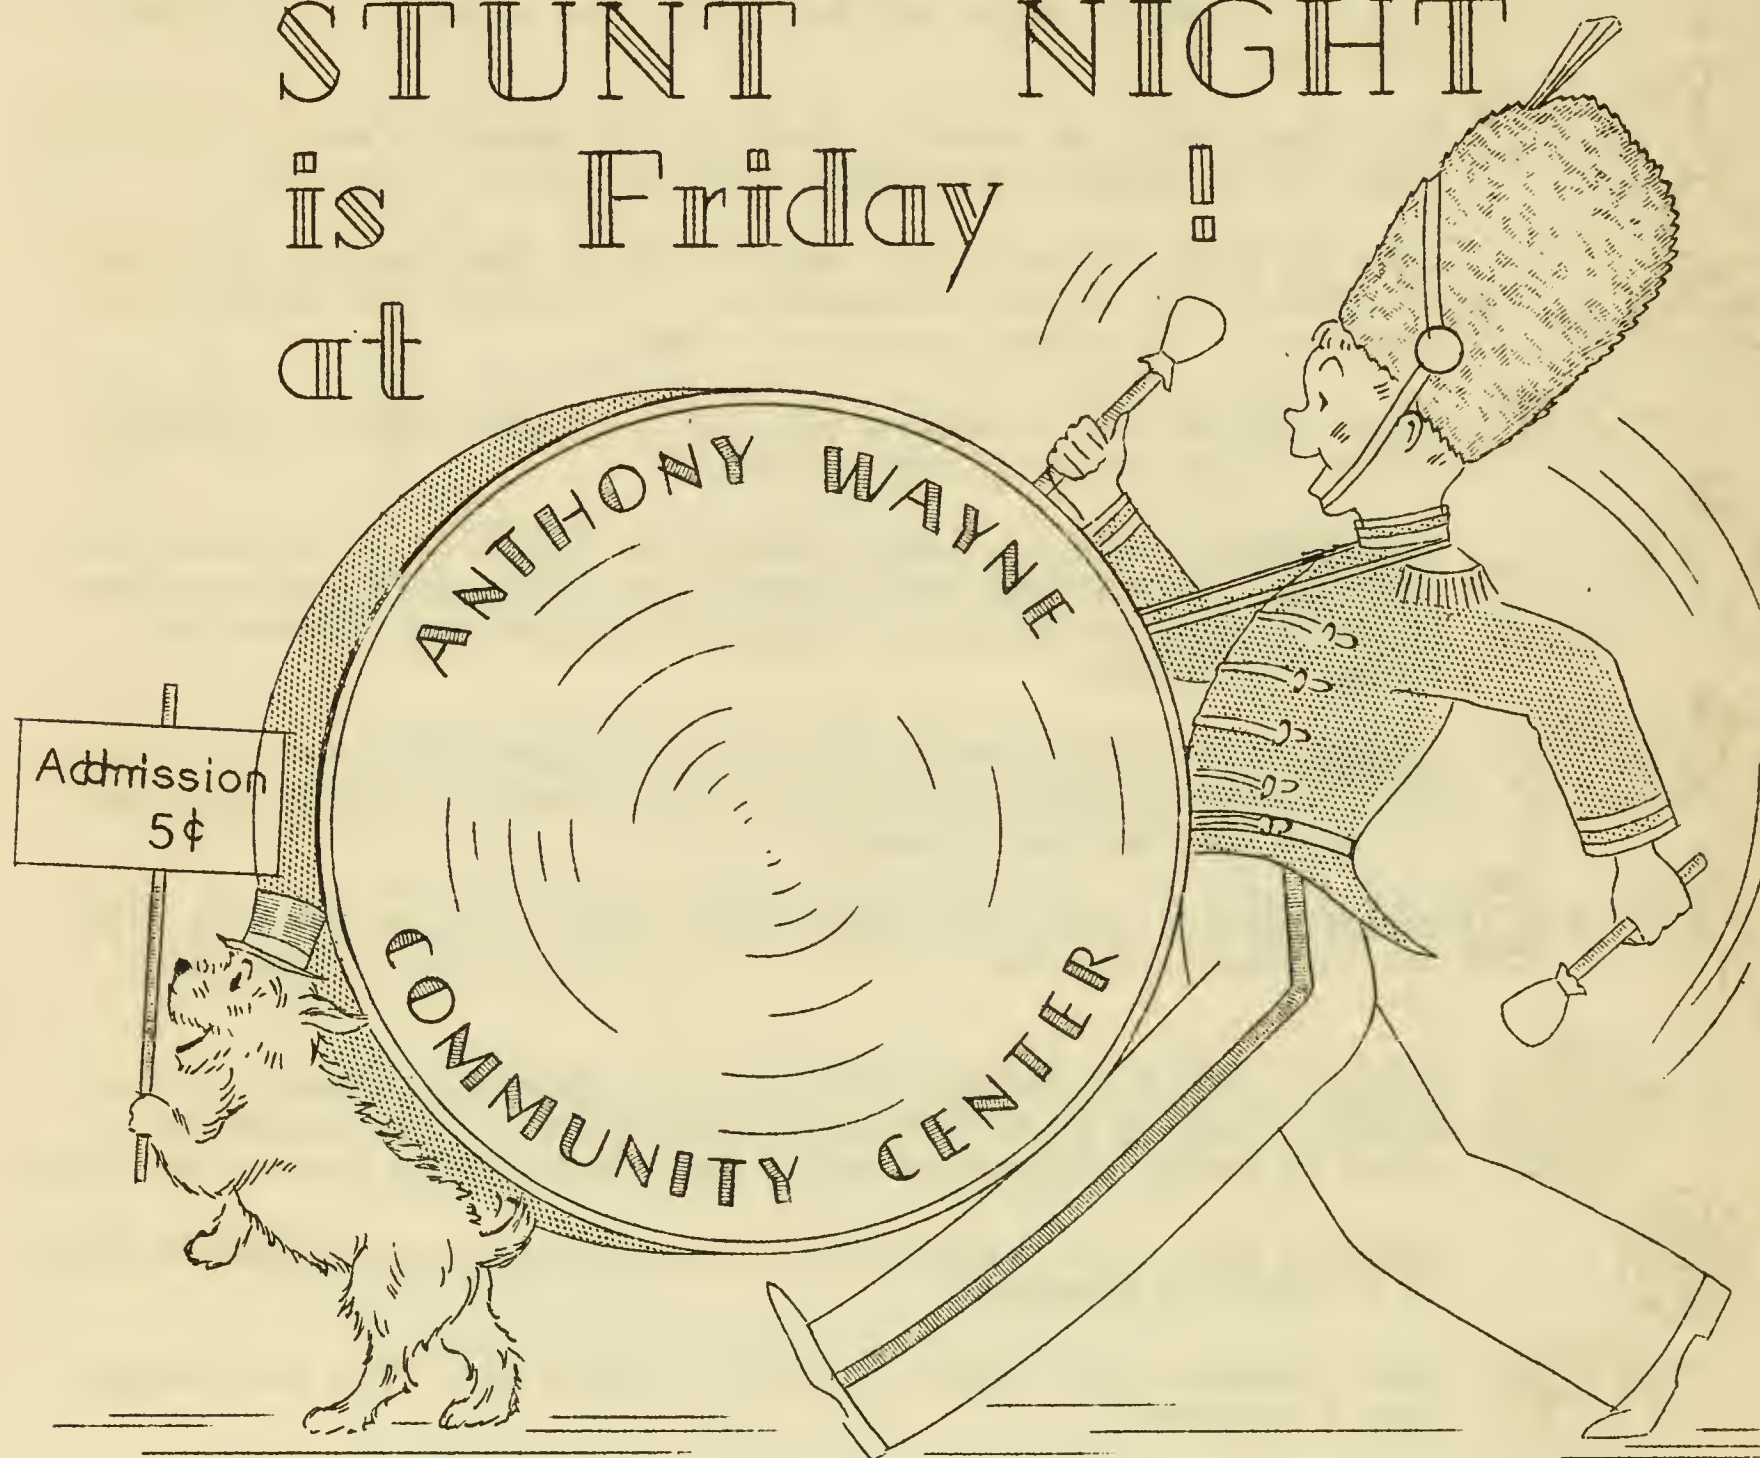 STUNT NIGHT
is Friday !
at
ANTHONY WAYNE
COMMUNITY CENTER
Admission
5¢